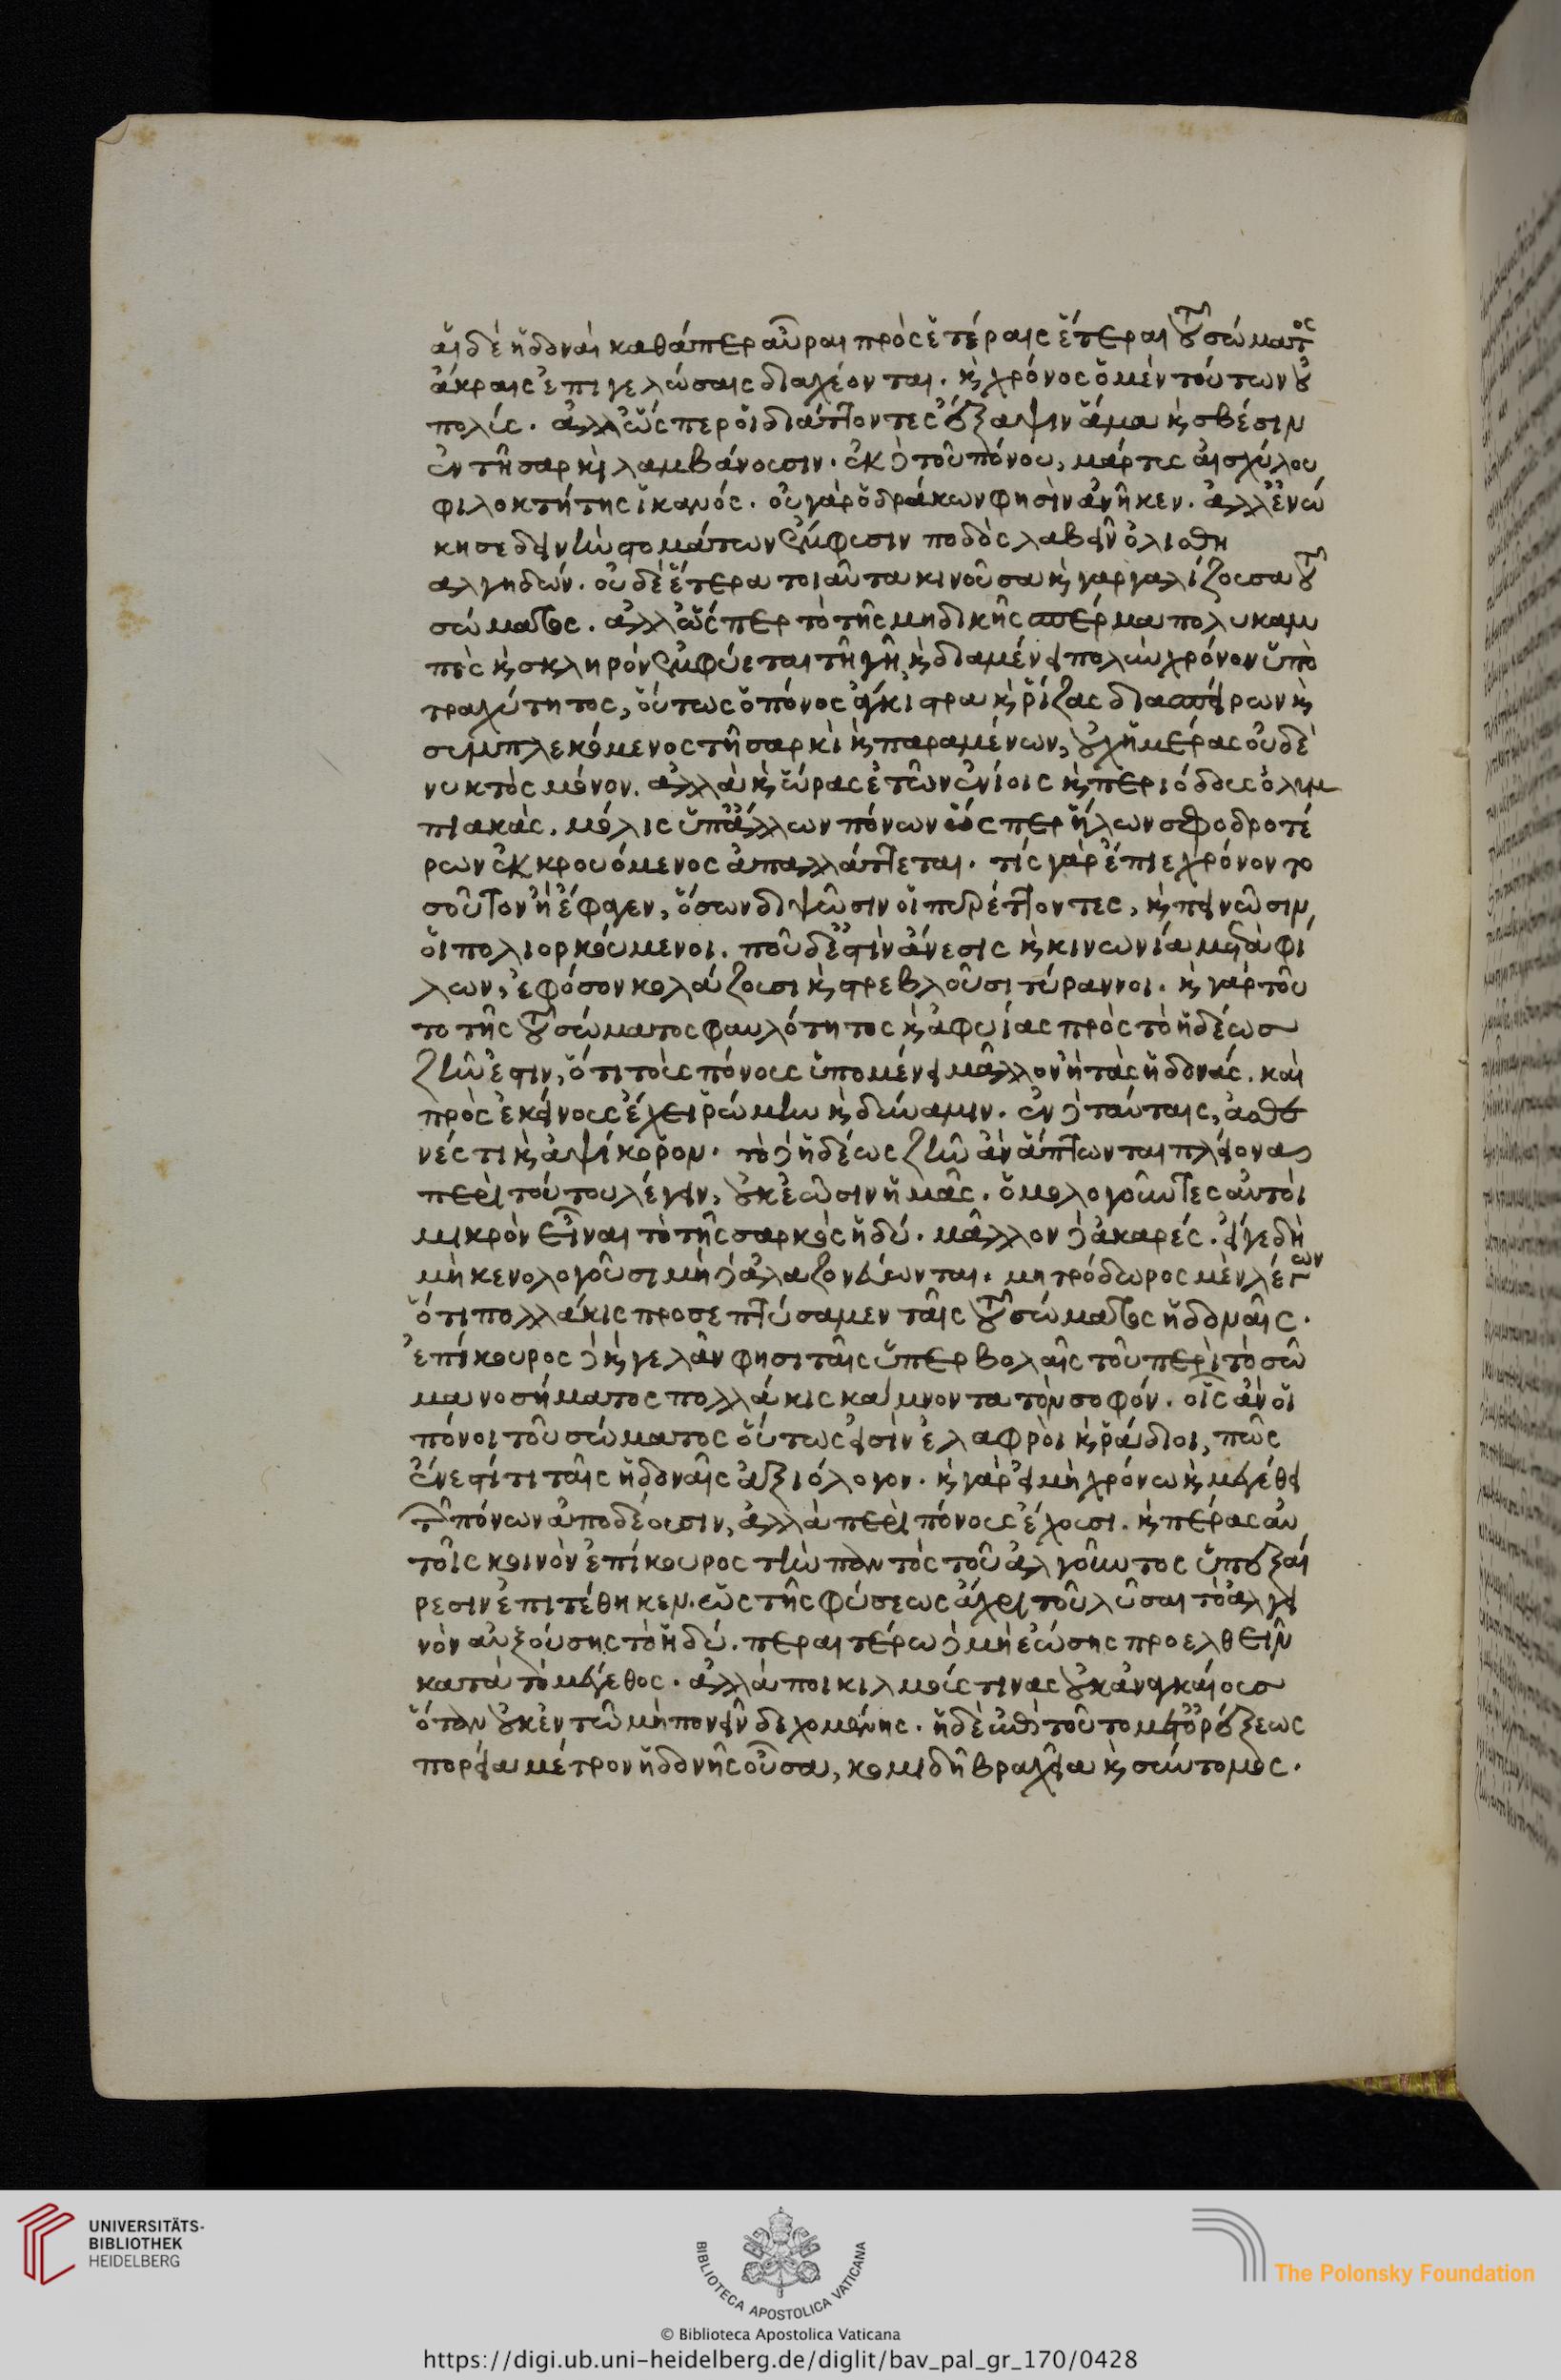 αἱ δὲ ἡδοναὶ καθάπερ αὖραι πρὸς ἑτέραις ἕτεραι τοῦ σώματος
ἄκραις ἐπιγελώσαις διαχέονται. καὶ χρόνος ὁ μὲν τούτων οὐ
πολύς. ἀλλ' ὥσπερ οἱ διάττοντες ἔξαψιν ἅμα καὶ σβέσιν
ἐν τῇ σαρκὶ λαμβάνουσιν. ἐκ δὲ τοῦ πόνου, μάρτυς αἰσχύλου
φιλοκτήτης ἱκανός. οὐ γὰρ ὁ δράκων φησὶν ἀνῆκεν. ἀλλ' ἐνώ
κησε δεινὴν στομάτων ἔμφυσιν ποδὸς λαβεῖν ὀλισθη
αλγηδών. οὐδὲ ἕτερα τοιαῦτα κινοῦσα καὶ γαργαλίζουσα τοῦ
σώματος. ἀλλ' ὥσπερ τὸ τῆς μηδικῆς σπέρμα πολυκαμ
πὲς καὶ σκληρὸν ἐμφύεται τῇ γῇ καὶ διαμένει πολὺν χρόνον ὑπὸ
τραχύτητος, οὕτως ὁ πόνος ἄγκιστρα καὶ ῥίζας διασπείρων καὶ
συμπλεκόμενος τῇ σαρκὶ καὶ παραμένων, οὐχ ἡμέρας οὐδὲ
νυκτὸς μόνον. ἀλλὰ καὶ ὥρας ἐτῶν ἐνίοις καὶ περιόδους ὀλυμ
πιακὰς, μόλις ὑπ' ἄλλων πόνων ὥσπερ ἥλων σφοδροτέ
ρων ἐκκρουόμενος ἀπαλλάττεται. τίς γὰρ ἔπιε χρόνον το
σοῦτον ἢ ἔφαγεν, ὅσων διψῶσιν οἱ πυρέττοντες, καὶ πεινῶσιν
οἱ πολιορκούμενοι. ποῦ δέ ἐστιν ἄνεσις καὶ κινωνία μετὰ φί
λων, ἐφ' ὅσον κολάζουσι καὶ στρεβλοῦσι τύραννοι. καὶ γὰρ τοῦ
το τῆς τοῦ σώματος φαυλότητος καὶ ἀφυίας πρὸς τὸ ἡδέως
ζῆν ἐστιν, ὅτι τοὺς πόνους ὑπομένει μᾶλλον ἢ τὰς ἡδονάς. καὶ
πρὸς ἐκείνους ἔχει ῥώμην καὶ δύναμιν. ἐν δὲ ταύταις, ἀσθε
νές τι καὶ ἁψίκορον. τὸ δὲ ἡδέως ζῆν ἂν ἅπτωνται πλείονας
περὶ τούτου λέγειν, οὐκ ἐῶσιν ἡμᾶς. ὁμολογοῦντες αὐτοὶ
μικρὸν εἶναι τὸ τῆς σαρκὸς ἡδύ. μᾶλλον δὲ ἀκαρές. εἴγε δὴ
μὴ κενολογοῦσι μὴ δὲ ἀλαζονεύωνται. μητρόδωρος μὲν λέγων
ὅτι πολλάκις προσεπτύσαμεν ταῖς τοῦ σώματος ἡδοναῖς.
ἐπίκουρος δὲ καὶ γελᾶν φησι ταῖς ὑπερβολαῖς τοῦ περὶ τὸ σῶ
μα νοσήματος πολλάκις κάμνοντα τὸν σοφόν. οἷς ἂν οἱ
πόνοι τοῦ σώματος οὕτως εἰσὶν ἐλαφροὶ καὶ ῥάδιοι, πῶς
ἔνεστί τι ταῖς ἡδοναῖς ἀξιόλογον. καὶ γὰρ εἰ μὴ χρόνῳ καὶ μεγέθει
τῶν πόνων ἀποδέουσιν, ἀλλὰ περὶ πόνους ἔχουσι. καὶ πέρας αὐ
τοῖς κοινὸν ἐπίκουρος τὴν παντὸς τοῦ ἀλγοῦντος ὑπεξαί
ρεσιν ἐπιτέθηκεν. ὡς τῆς φύσεως ἄχρι τοῦ λῦσαι τὸ ἀλγει
νὸν αὐξούσης τὸ ἡδύ. περαιτέρω δὲ μὴ ἐώσης προελθεῖν
κατὰ τὸ μέγεθος. ἀλλὰ ποικιλμούς τινας οὐκ ἀναγκαίους
ὅταν οὐκ ἐν τῷ μὴ πονεῖν δεχομένης. ἡ δὲ ἐπὶ τοῦτο μετ' ὀρέξεως
πορεία μέτρον ἡδονῆς οὖσα, κομιδῇ βραχεῖα καὶ σύντομος.
UNIVERSITÄTS-
BIBLIOTHEK
HEIDELBERG
BIBLIOTECA APOSTOLICA VATICANA
The Polonsky Foundation
© Biblioteca Apostolica Vaticana
https://digi.ub.uni-heidelberg.de/diglit/bav_pal_gr_170/0428